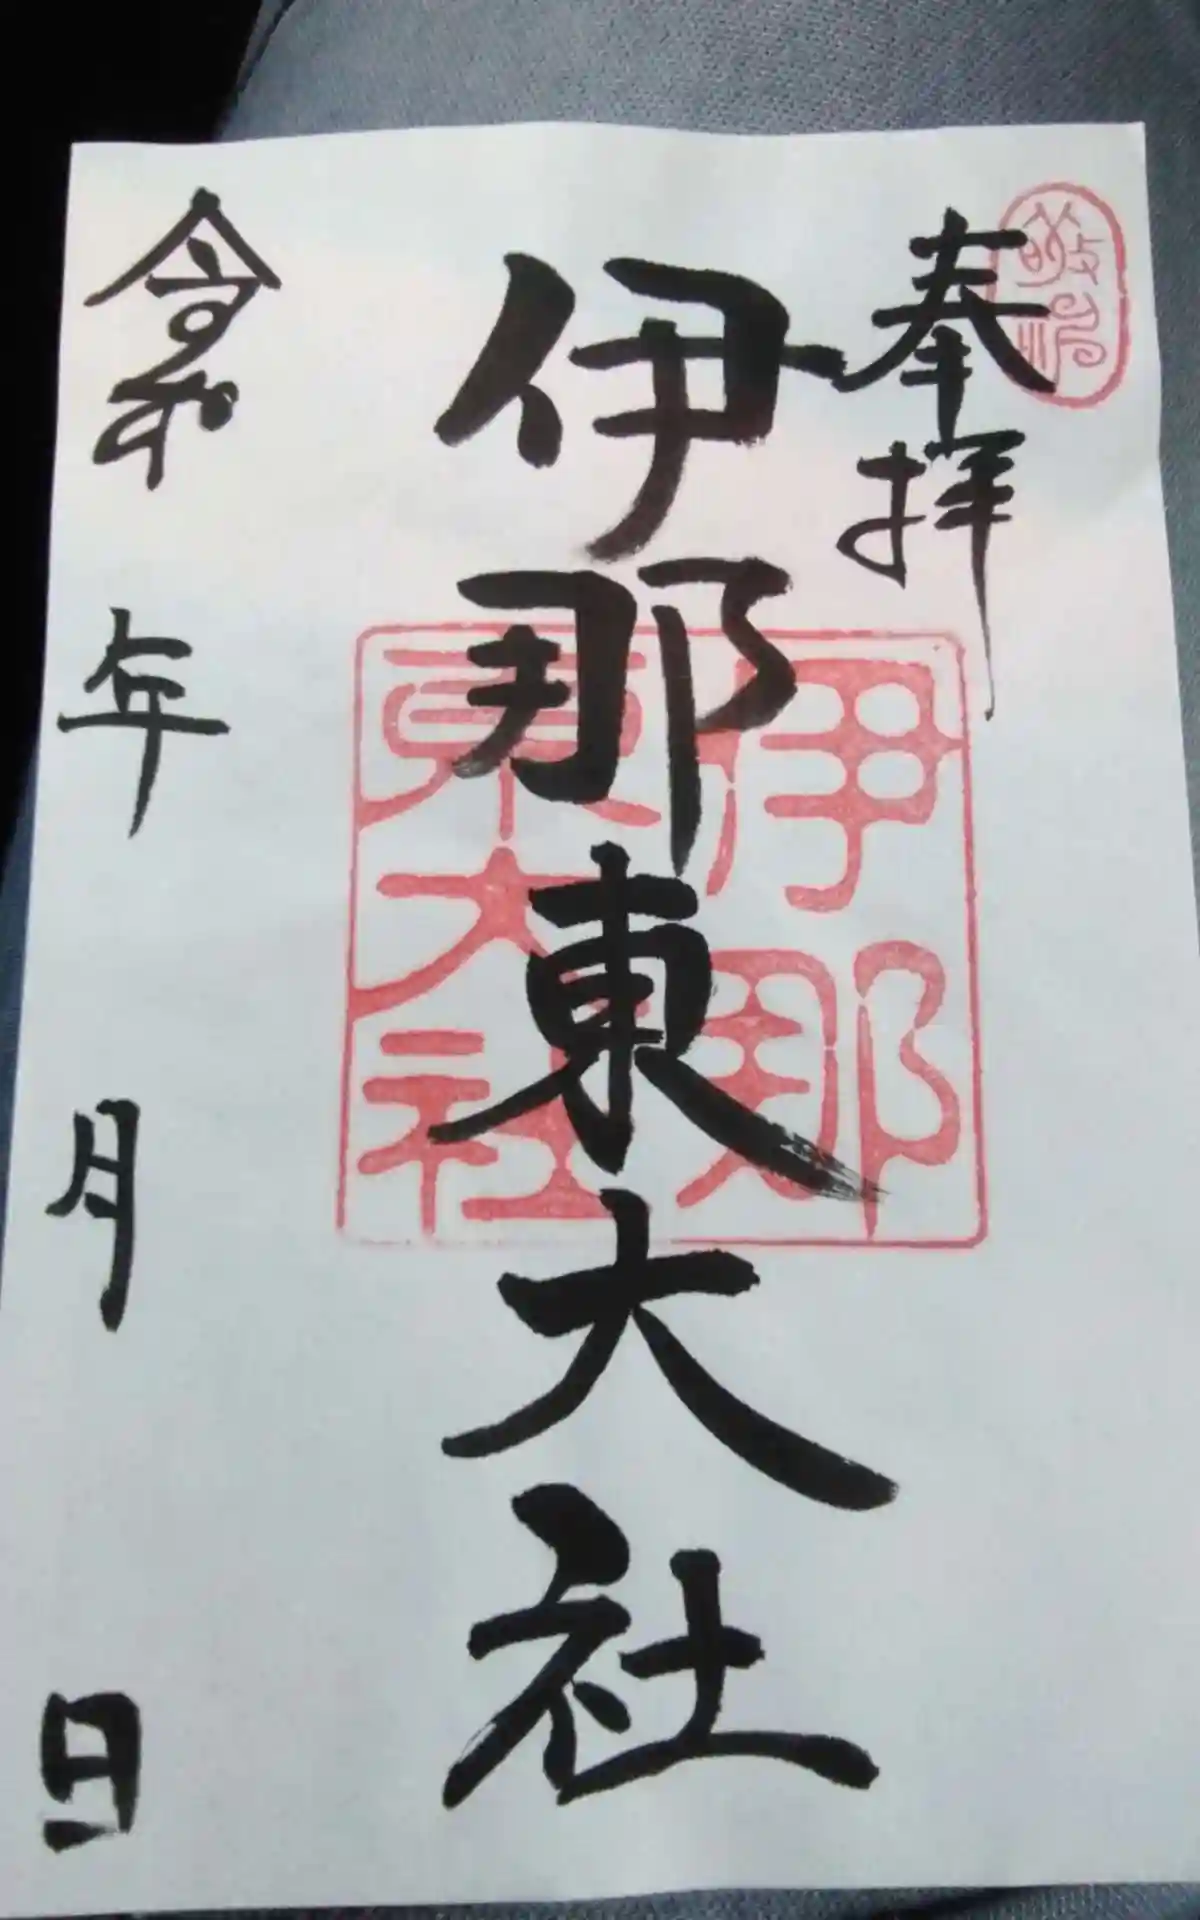 奉拝
伊那東大社
伊那
東大社
令和 年 月 日